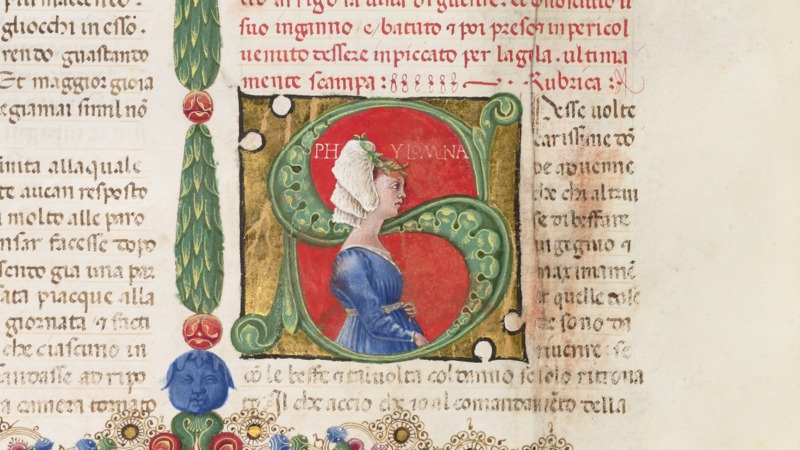 gliocchi in esso.
rendo guastando
Et maggior gioia
egiamai simil nō
inita alla quale
te aucan resposto
molto alle paro
nsar facesse dopo
sento gia una par
ata piacque alla
giornata & facti
che ciascuno in
andasse ad ripo
a camera tornato
suo inganno / e / batuto & poi preso & in pericol
venuto dessere inpiccato per la gola. ultima
mente scampa: Rubrica:
PHYLOMNA
Desse uolte
carissime dō
ne aduenne
che chi altrui
se di beffare
ingegnio &
maximamē
te quelle cose
che sono da
riuerire se
cō le beffe & taluolta col danno se solo ritroua
to. Il che accio che io al comandamēto della